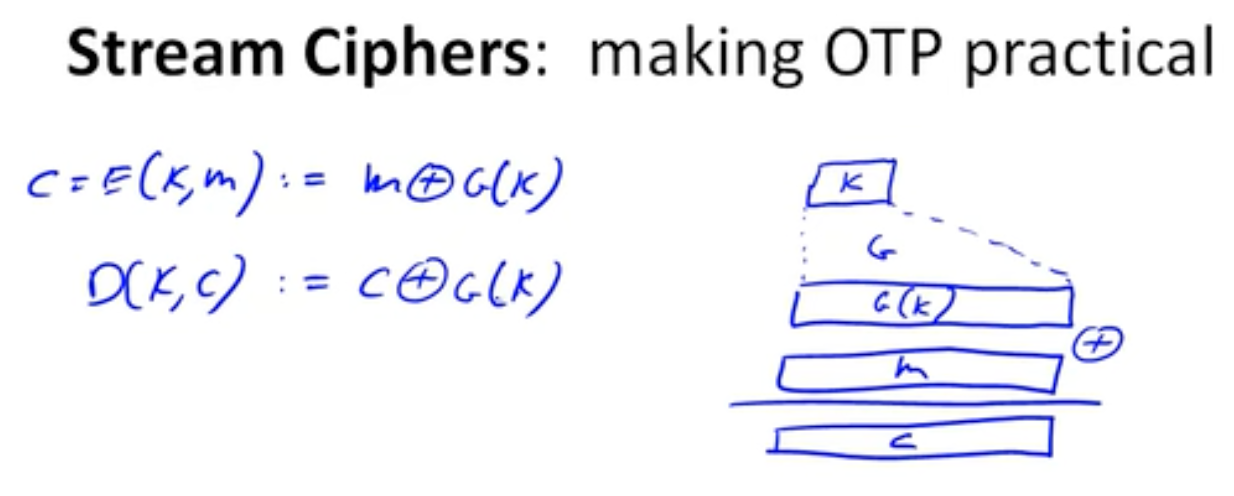 Stream Ciphers: making OTP practical
C = E(K,m) := m⊕G(K)
D(K,c) := C⊕G(K)
K
G
G(K)
⊕
m
c